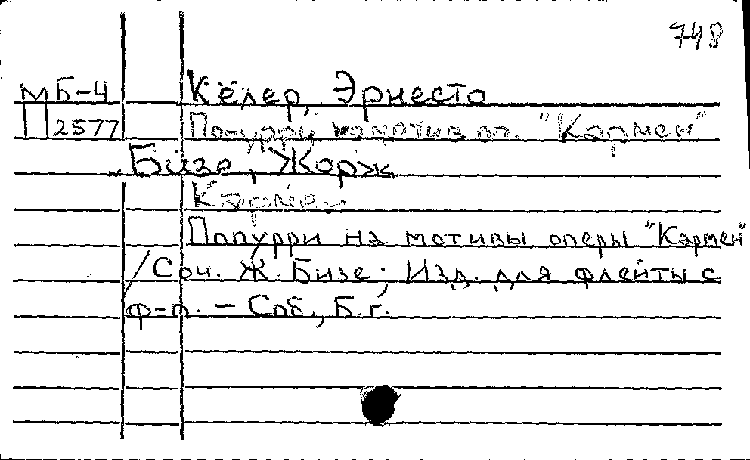 748
МБ-4 Кёлер, Эрнесто
П 2577 Попурри на мотив оп. "Кармен"
Бизе, Жорж
Кармен
Попурри на мотивы оперы "Кармен"
/Соч. Ж. Бизе; Изд. для флейты с
ф-п. - Спб., Б.г.